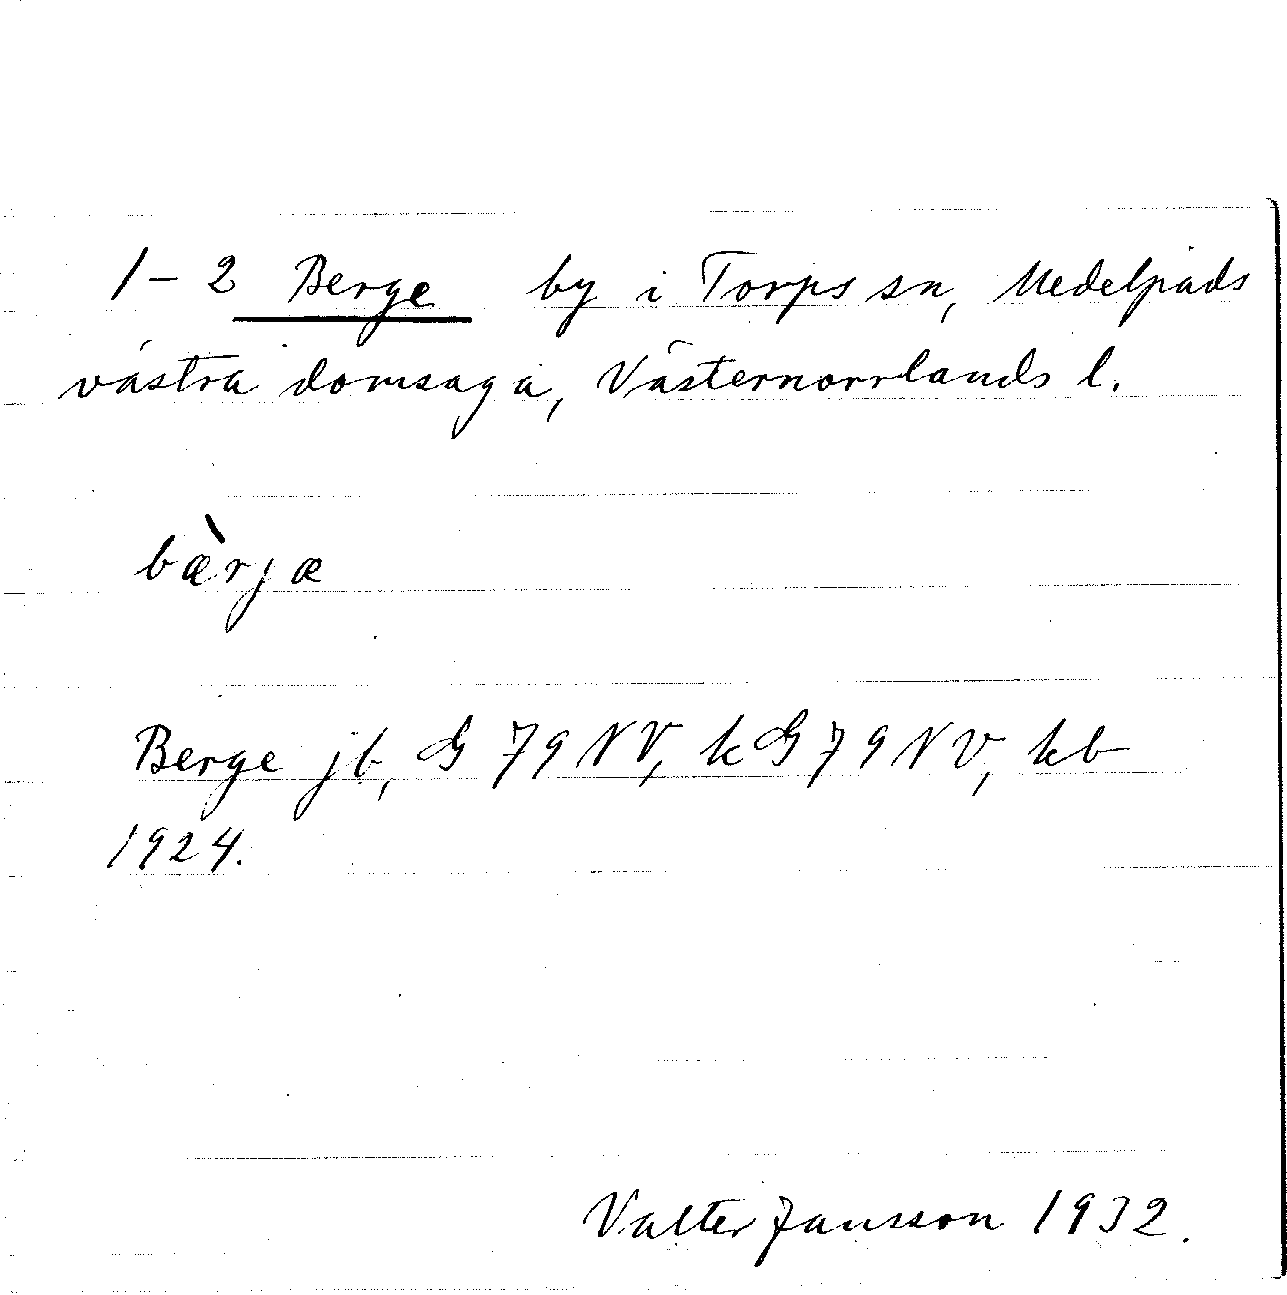 1-2 Berge by i Torps sn, Medelpads
västra domsaga, Västernorrlands l.
bæ̀rjæ
Berge jb, G 79 NV, kG 79 NV, kb
1924.
Valter Jansson 1932.